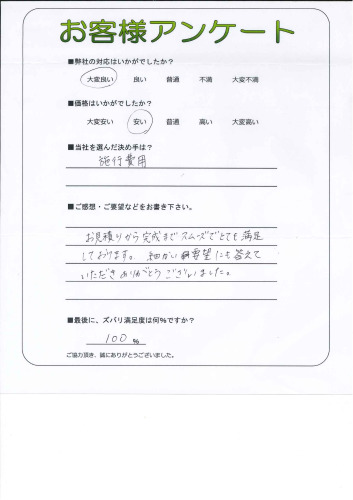 お客様アンケート
■弊社の対応はいかがでしたか?
大変良い 良い 普通 不満 大変不満
■価格はいかがでしたか?
大変安い 安い 普通 高い 大変高い
■当社を選んだ決め手は?
施行費用
■ご感想・ご要望などをお書き下さい。
お見積りから完成までスムーズでとても満足
しております。 細かい要望にも答えて
いただきありがとうございました。
■最後に、ズバリ満足度は何%ですか?
100 %
ご協力頂き、誠にありがとうございました。